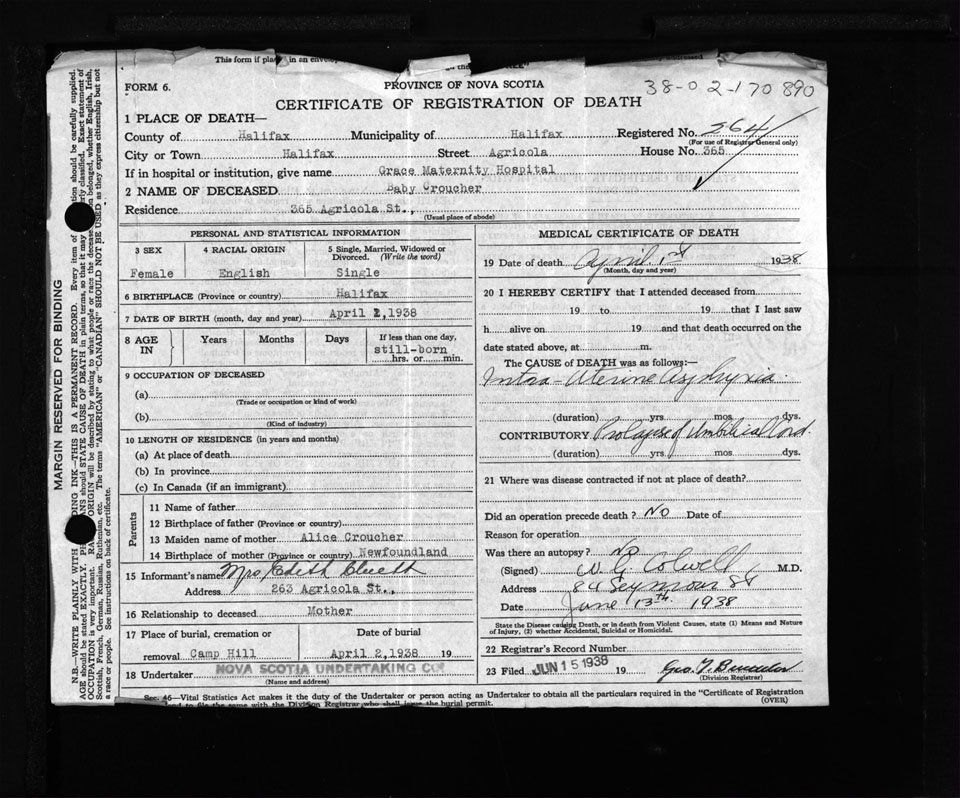 This form if
FORM 6.
PROVINCE OF NOVA SCOTIA
38-0 2-170 890
CERTIFICATE OF REGISTRATION OF DEATH
1 PLACE OF DEATH—
County of Halifax Municipality of Halifax Registered No. 564
(For use of Registrar General only)
City or Town Halifax Street Agricola House No. 365
If in hospital or institution, give name Grace Maternity Hospital
2 NAME OF DECEASED Baby Croucher
Residence 365 Agricola St.,
(Usual place of abode)
PERSONAL AND STATISTICAL INFORMATION
3 SEX 4 RACIAL ORIGIN 5 Single, Married, Widowed or Divorced. (Write the word)
Female English Single
6 BIRTHPLACE (Province or country) Halifax
7 DATE OF BIRTH (month, day and year) April 1,1938
8 AGE IN Years Months Days If less than one day,
still-born
hrs. or min.
9 OCCUPATION OF DECEASED
(a)
(Trade or occupation or kind of work)
(b)
(Kind of industry)
10 LENGTH OF RESIDENCE (in years and months)
(a) At place of death
(b) In province
(c) In Canada (if an immigrant)
Parents
11 Name of father
12 Birthplace of father (Province or country)
13 Maiden name of mother Alice Croucher
14 Birthplace of mother (Province or country) Newfoundland
15 Informant's name Mrs Edith Cluett
Address 263 Agricola St.,
16 Relationship to deceased Mother
17 Place of burial, cremation or removal Camp Hill
Date of burial April 2,1938 19
18 Undertaker NOVA SCOTIA UNDERTAKING CO
(Name and address)
MEDICAL CERTIFICATE OF DEATH
19 Date of death April 1st 1938
(Month, day and year)
20 I HEREBY CERTIFY that I attended deceased from
19 to 19 that I last saw
h alive on 19 and that death occurred on the
date stated above, at m.
The CAUSE of DEATH was as follows:—
Intra-Uterine Asphyxia.
(duration) yrs. mos. dys.
CONTRIBUTORY Prolapse of Umbilical Cord.
(duration) yrs. mos. dys.
21 Where was disease contracted if not at place of death?
Did an operation precede death? No Date of
Reason for operation
Was there an autopsy? No
(Signed) W. G. Colwell M.D.
Address 84 Seymour St
Date June 13th. 1938
State the Disease causing Death, or in death from Violent Causes, state (1) Means and Nature
of Injury, (2) whether Accidental, Suicidal or Homicidal.
22 Registrar's Record Number
23 Filed JUN 15 1938 19
(Division Registrar)
Sec. 46—Vital Statistics Act makes it the duty of the Undertaker or person acting as Undertaker to obtain all the particulars required in the "Certificate of Registration
and to file the same with the Division Registrar who shall issue the burial permit.
(OVER)
MARGIN RESERVED FOR BINDING
N.B.—WRITE PLAINLY WITH
DING INK—THIS IS A PERMANENT RECORD. Every item of
tion should be carefully supplied.
AGE should be stated EXACTLY.
ANS should STATE CAUSE OF DEATH in plain terms, so that it may
erly classified. Exact statement of
OCCUPATION is very important.
ORIGIN will be described by stating to what people or race the deceased
belonged, whether English, Irish,
Scottish, French, German, Russian, Ruthenian, etc. The terms "AMERICAN" or "CANADIAN" SHOULD NOT BE USED as they express citizenship but not
a race or people. See instructions on back of certificate.